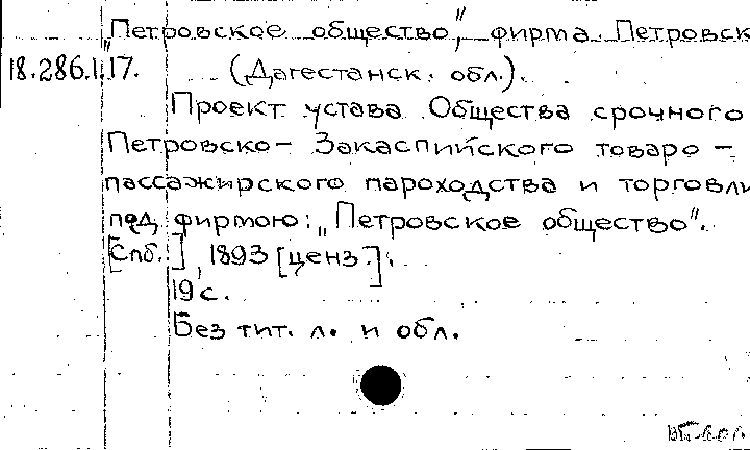 „Петровское общество”, фирма. Петровск
18.286.1.17. (Дагестанск. обл.).
Проект устава Общества срочного
Петровско- Закаспийского товаро -
пассажирского пароходства и торговли
под фирмою: „Петровское общество”.
[Спб.], 1893 [ценз.].
19 с.
Без тит. л. и обл.